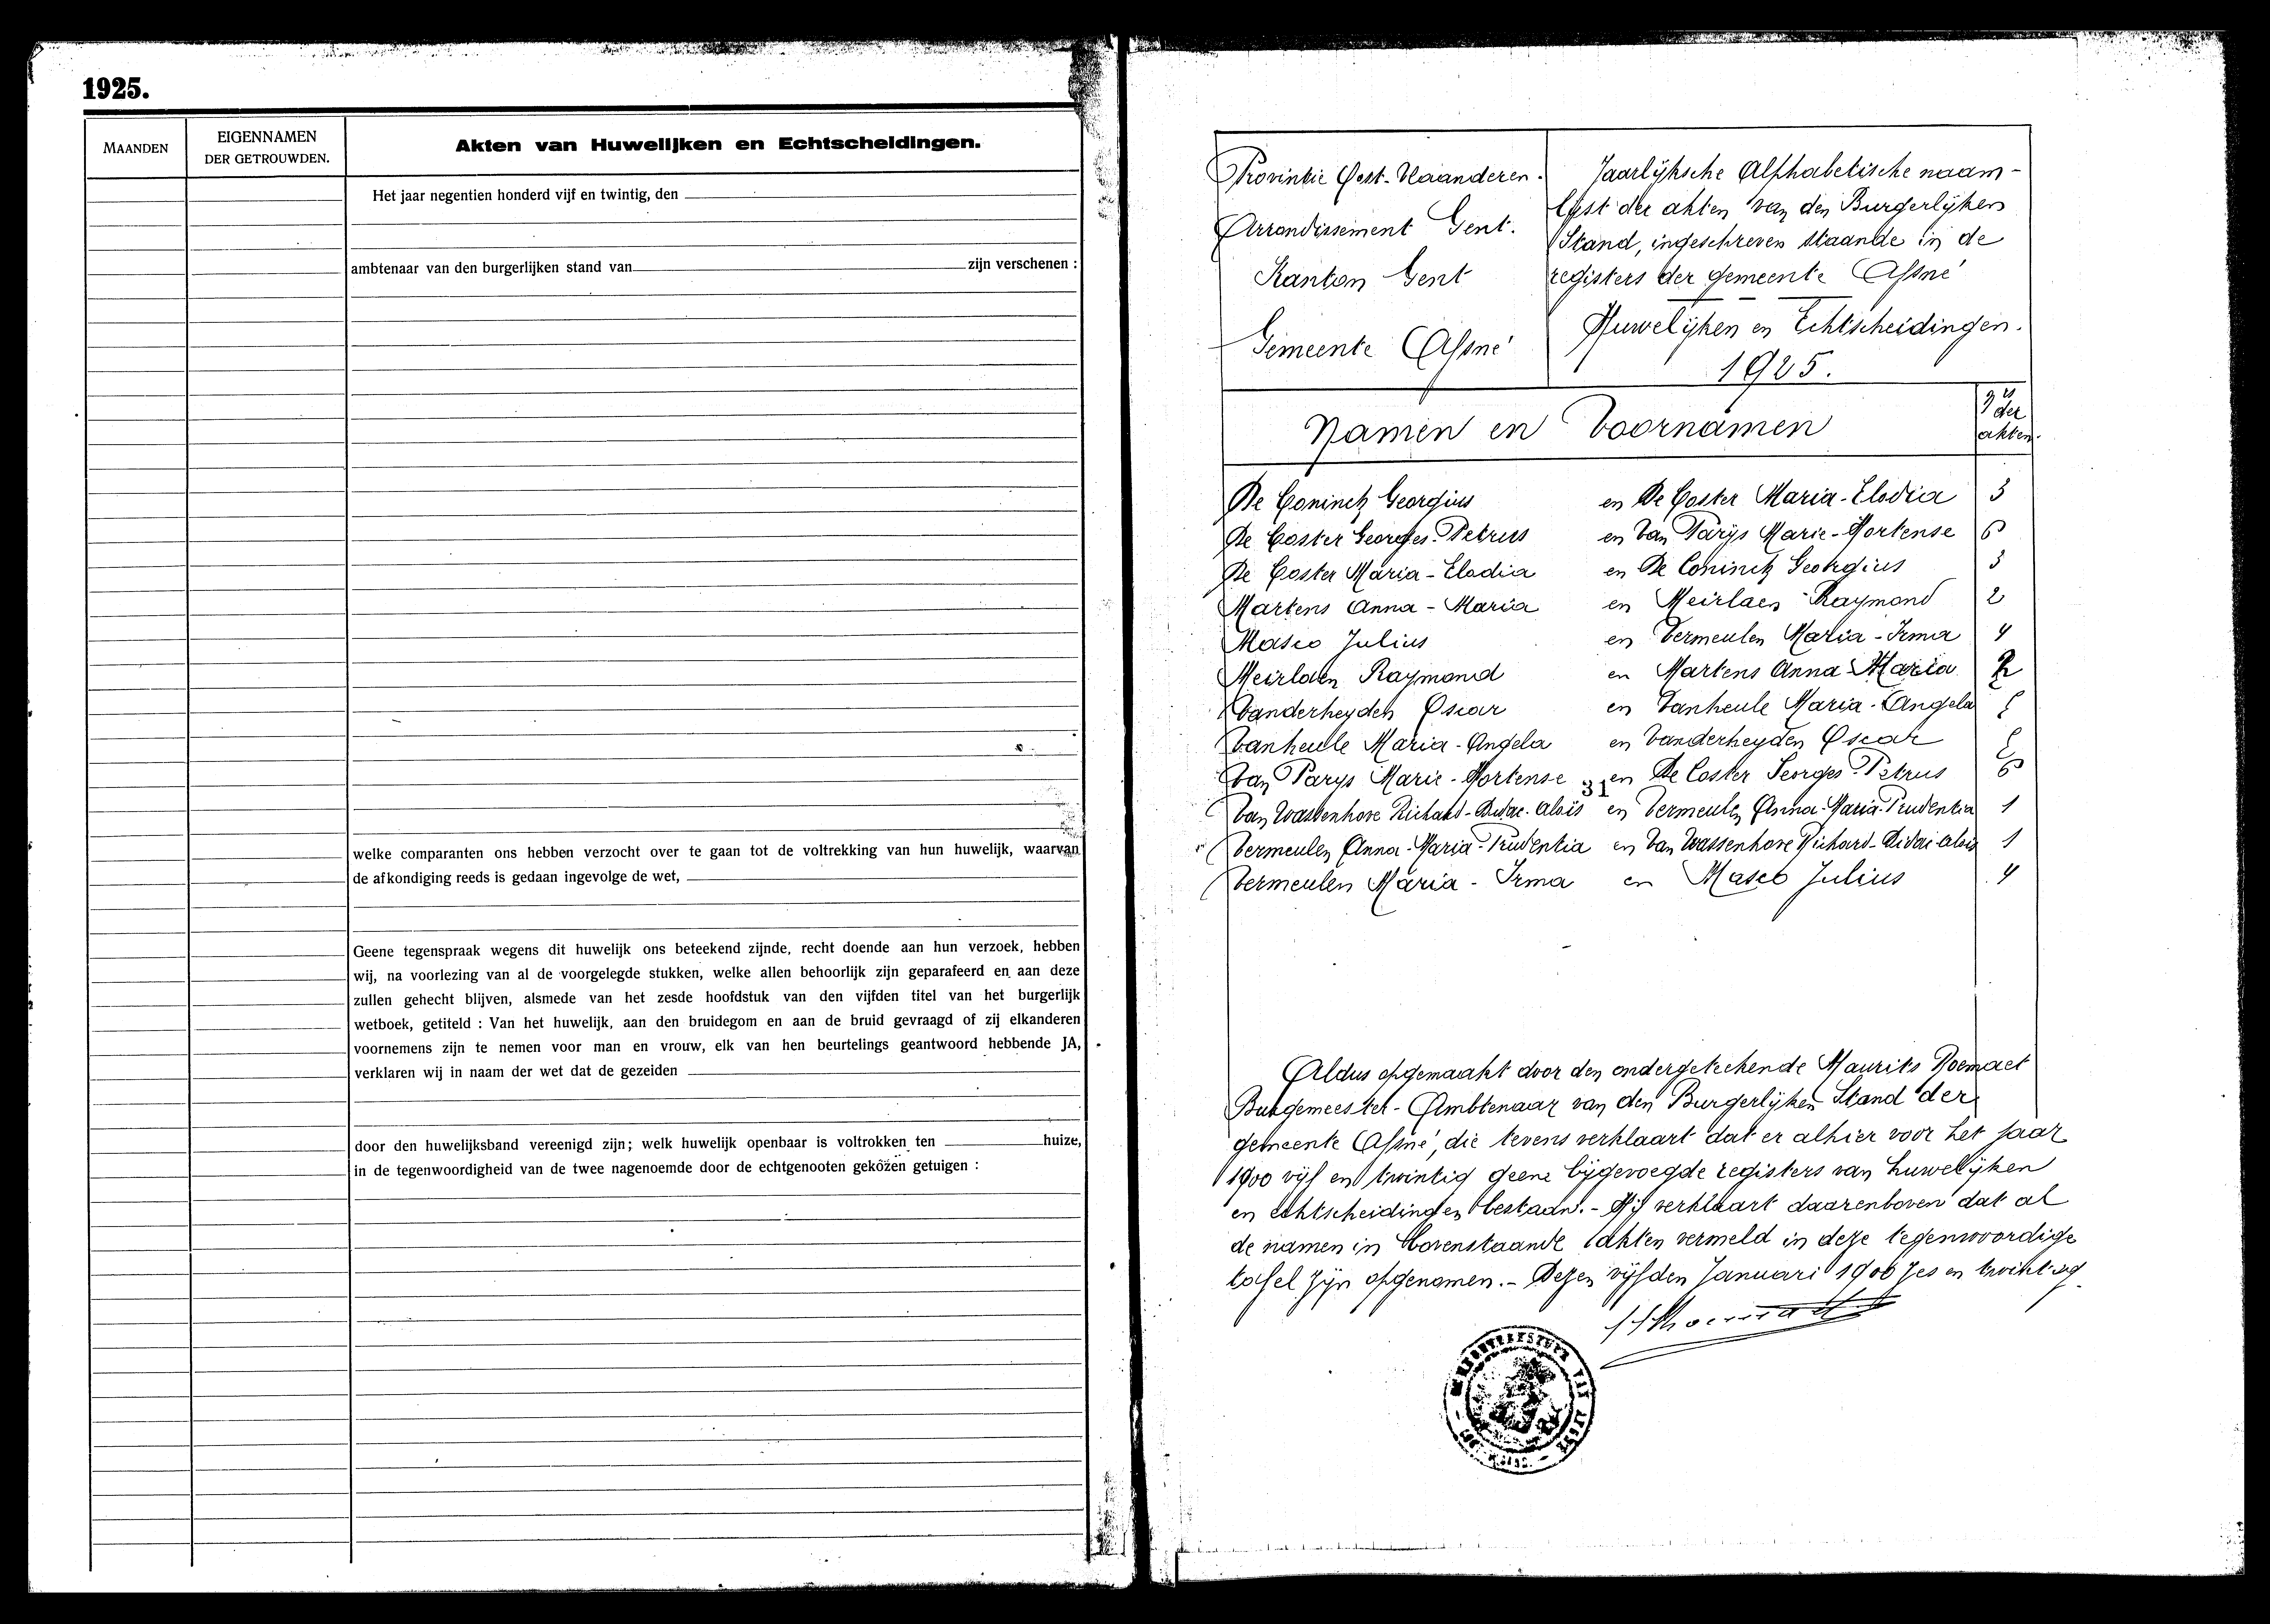 1925.
MAANDEN
EIGENNAMEN
DER GETROUWDEN.
Akten van Huwelijken en Echtscheidingen.
Het jaar negentien honderd vijf en twintig, den
ambtenaar van den burgerlijken stand van zijn verschenen :
welke comparanten ons hebben verzocht over te gaan tot de voltrekking van hun huwelijk, waarvan
de afkondiging reeds is gedaan ingevolge de wet,
Geene tegenspraak wegens dit huwelijk ons beteekend zijnde, recht doende aan hun verzoek, hebben
wij, na voorlezing van al de voorgelegde stukken, welke allen behoorlijk zijn geparafeerd en aan deze
zullen gehecht blijven, alsmede van het zesde hoofdstuk van den vijfden titel van het burgerlijk
wetboek, getiteld : Van het huwelijk, aan den bruidegom en aan de bruid gevraagd of zij elkanderen
voornemens zijn te nemen voor man en vrouw, elk van hen beurtelings geantwoord hebbende JA,
verklaren wij in naam der wet dat de gezeiden
door den huwelijksband vereenigd zijn; welk huwelijk openbaar is voltrokken ten huize,
in de tegenwoordigheid van de twee nagenoemde door de echtgenooten gekozen getuigen :
Provintie Oost-Vlaanderen.
Arrondissement Gent.
Kanton Gent
Gemeente Afsné
Jaarlijksche Alphabetische naam-
lijst der akten van den Burgerlijken
Stand, ingeschreven staande in de
registers der gemeente Afsné
Huwelijken en Echtscheidingen.
1925.
Namen en Voornamen
der
akten.
De Coninck Georgius en De Coster Maria-Elodia 3
De Coster Georges-Petrus en Van Parijs Marie-Hortense 6
De Coster Maria-Elodia en De Coninck Georgius 3
Martens Anna-Maria en Meirlaen Raymond 2
Masco Julius en Vermeulen Maria-Irma 4
Meirlaen Raymond en Martens Anna-Maria 2
Vanderheyden Oscar en Vanheule Maria-Angela 5
Vanheule Maria-Angela en Vanderheyden Oscar 5
Van Parys Marie-Hortense en De Coster Georges-Petrus 6
31
Van Wassenhove Richard-Didac-Alois en Vermeulen Anna-Maria-Prudentia 1
Vermeulen Anna-Maria-Prudentia en Van Wassenhove Richard-Didac-Alois 1
Vermeulen Maria-Irma en Masco Julius 4
Aldus opgemaakt door den ondergeteekende Maurits Roemaet
Burgemeester-Ambtenaar van den Burgerlijken Stand der
gemeente Afsné, die tevens verklaart dat er alhier voor het jaar
1900 vijf en twintig geene bijgevoegde registers van huwelijken
en echtscheidingen bestaan.- Hij verklaart daarenboven dat al
de namen in bovenstaande akten vermeld in deze tegenwoordige
tafel zijn opgenomen.- Dezen vijfden Januari 1900 zes en twintig.